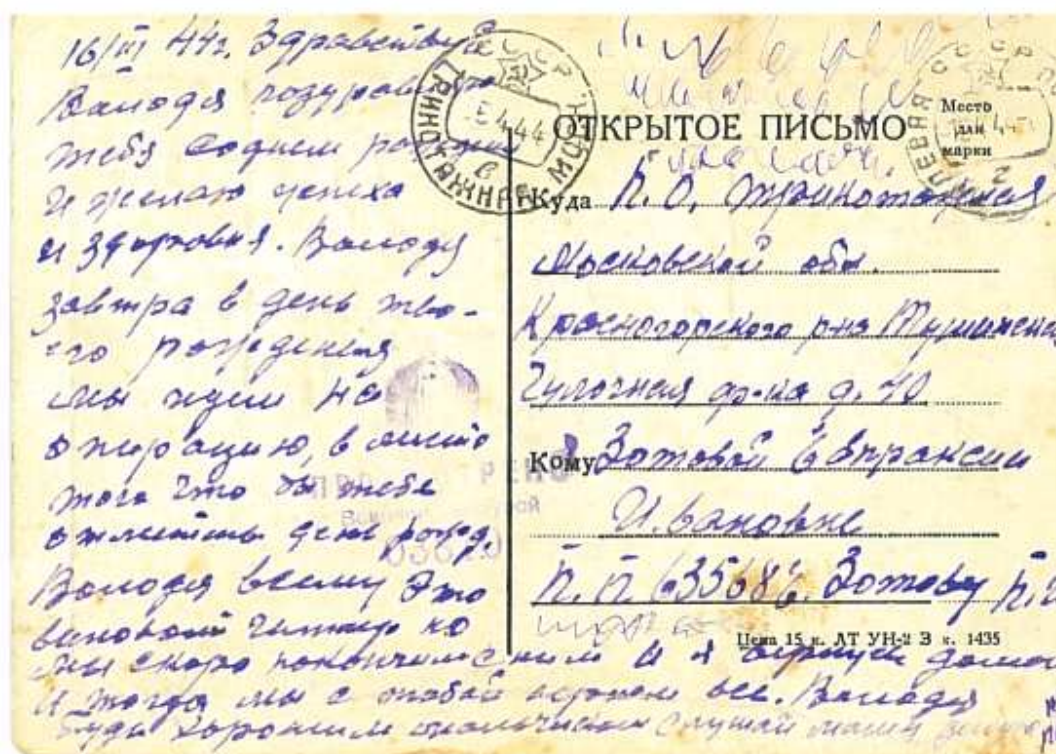 16/III 44г. Здравствуй
Володя поздравляю
тебя с днем рожд
и желаю успеха
и здоровья. Володя
завтра в день тво-
его рождения
мы идем на
операцию, в место
того что бы тебе
отметить день рожд.
Володя всему это
виноват Гитлер но
мы скоро покончим с ним и я вернусь домой
и тогда мы с тобой встретим все. Володя
будь хорошим мальчиком слушай маму
СССР
5.4.44
ТРИКОТАЖНАЯ МОСК.
ОТКРЫТОЕ ПИСЬМО
Место
для
марки
Куда П.О. Трикотажная
Московской обл.
Красногорского р-на Тушинская
Чулочная ф-ка д. 40
Кому Зотовой Евпраксии
Ивановне
П.П. 63568 Зотову П.
Цена 15 к. АТ УН-2 З к. 1435